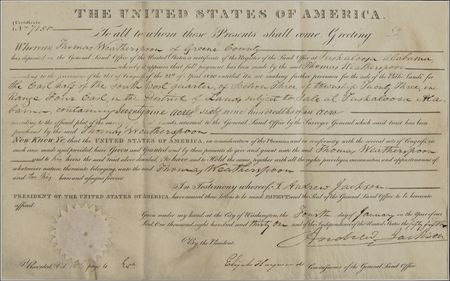 THE UNITED STATES OF AMERICA.
Certificate
No. 7150
To all to whom these Presents shall come Greeting
Whereas Thomas Weatherspoon of Greene County
has deposited in the General Land Office of the United States a certificate of the Register of the Land Office at Tuskaloosa Alabama
whereby it appears that full payment has been made by the said Thomas Weatherspoon
according to the provisions of the Act of Congress of the 24th of April 1820 entitled An act making further provision for the sale of the Public Lands for
the East half of the South West quarter, of Section Three, of Township Twenty Three, in
Range Four East, in the District of Lands subject to Sale at Tuskaloosa Ala
bama, containing Seventy nine acres
according to the official plat of the survey of the said Lands returned to the General Land Office by the Surveyor General which said tract has been
purchased by the said Thomas Weatherspoon
NOW KNOW YE that the UNITED STATES OF AMERICA, in consideration of the Premises and in conformity with the several acts of Congress in
such case made and provided have Given and Granted and by these presents do give and grant unto the said Thomas Weatherspoon
and to his heirs the said tract above described: To have and to Hold the same together with all the rights privileges immunities and appurtenances of
whatsoever nature, thereunto belonging unto the said Thomas Weatherspoon
and to his heirs and assigns forever
In Testimony whereof I, Andrew Jackson
PRESIDENT OF THE UNITED STATES OF AMERICA, have caused these Letters to be made PATENT and the Seal of the General Land Office to be hereunto
affixed.
Given under my hand at the City of Washington the Fourth day of January in the Year of our
Lord One thousand eight hundred and thirty one and of the Independence of the United States the fifty fifth
Andrew Jackson
By the President
Elijah Hayward Commissioner of the General Land Office
Recorded, Vol page